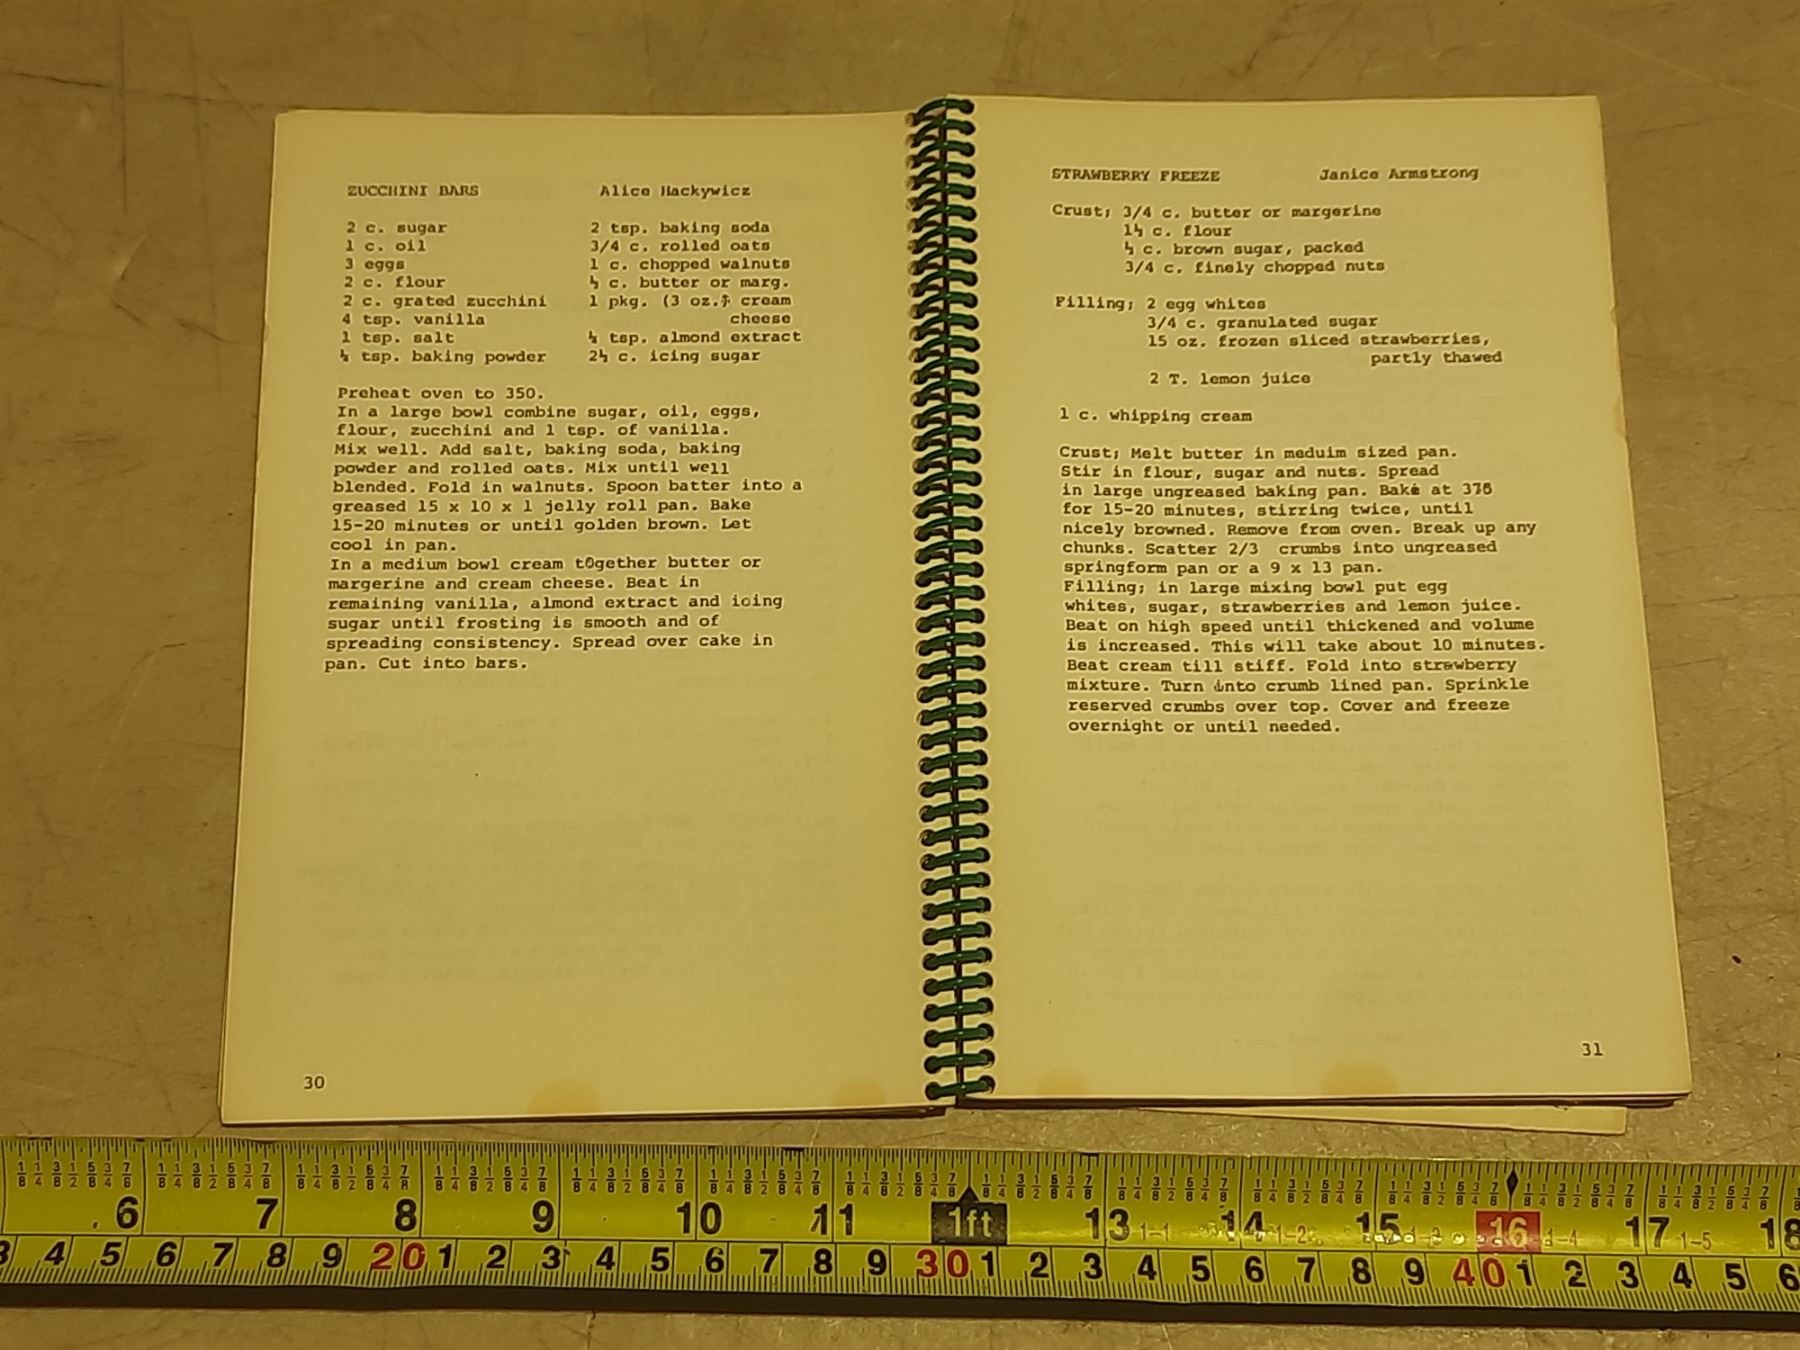 ZUCCHINI BARS Alice Hackywicz
2 c. sugar 2 tsp. baking soda
1 c. oil 3/4 c. rolled oats
3 eggs 1 c. chopped walnuts
2 c. flour ½ c. butter or marg.
2 c. grated zucchini 1 pkg. (3 oz.) cream
4 tsp. vanilla cheese
1 tsp. salt ¼ tsp. almond extract
¼ tsp. baking powder 2½ c. icing sugar
Preheat oven to 350.
In a large bowl combine sugar, oil, eggs,
flour, zucchini and 1 tsp. of vanilla.
Mix well. Add salt, baking soda, baking
powder and rolled oats. Mix until well
blended. Fold in walnuts. Spoon batter into a
greased 15 x 10 x 1 jelly roll pan. Bake
15-20 minutes or until golden brown. Let
cool in pan.
In a medium bowl cream together butter or
margerine and cream cheese. Beat in
remaining vanilla, almond extract and icing
sugar until frosting is smooth and of
spreading consistency. Spread over cake in
pan. Cut into bars.
30
STRAWBERRY FREEZE Janice Armstrong
Crust; 3/4 c. butter or margerine
1½ c. flour
½ c. brown sugar, packed
3/4 c. finely chopped nuts
Filling; 2 egg whites
3/4 c. granulated sugar
15 oz. frozen sliced strawberries,
partly thawed
2 T. lemon juice
1 c. whipping cream
Crust; Melt butter in meduim sized pan.
Stir in flour, sugar and nuts. Spread
in large ungreased baking pan. Bake at 375
for 15-20 minutes, stirring twice, until
nicely browned. Remove from oven. Break up any
chunks. Scatter 2/3 crumbs into ungreased
springform pan or a 9 x 13 pan.
Filling; in large mixing bowl put egg
whites, sugar, strawberries and lemon juice.
Beat on high speed until thickened and volume
is increased. This will take about 10 minutes.
Beat cream till stiff. Fold into strawberry
mixture. Turn into crumb lined pan. Sprinkle
reserved crumbs over top. Cover and freeze
overnight or until needed.
31
6 7 8 9 10 11 1ft 13 1-1 14 1-2 15 1-3 16 1-4 17 1-5 18
3 4 5 6 7 8 9 20 1 2 3 4 5 6 7 8 9 30 1 2 3 4 5 6 7 8 9 40 1 2 3 4 5 6